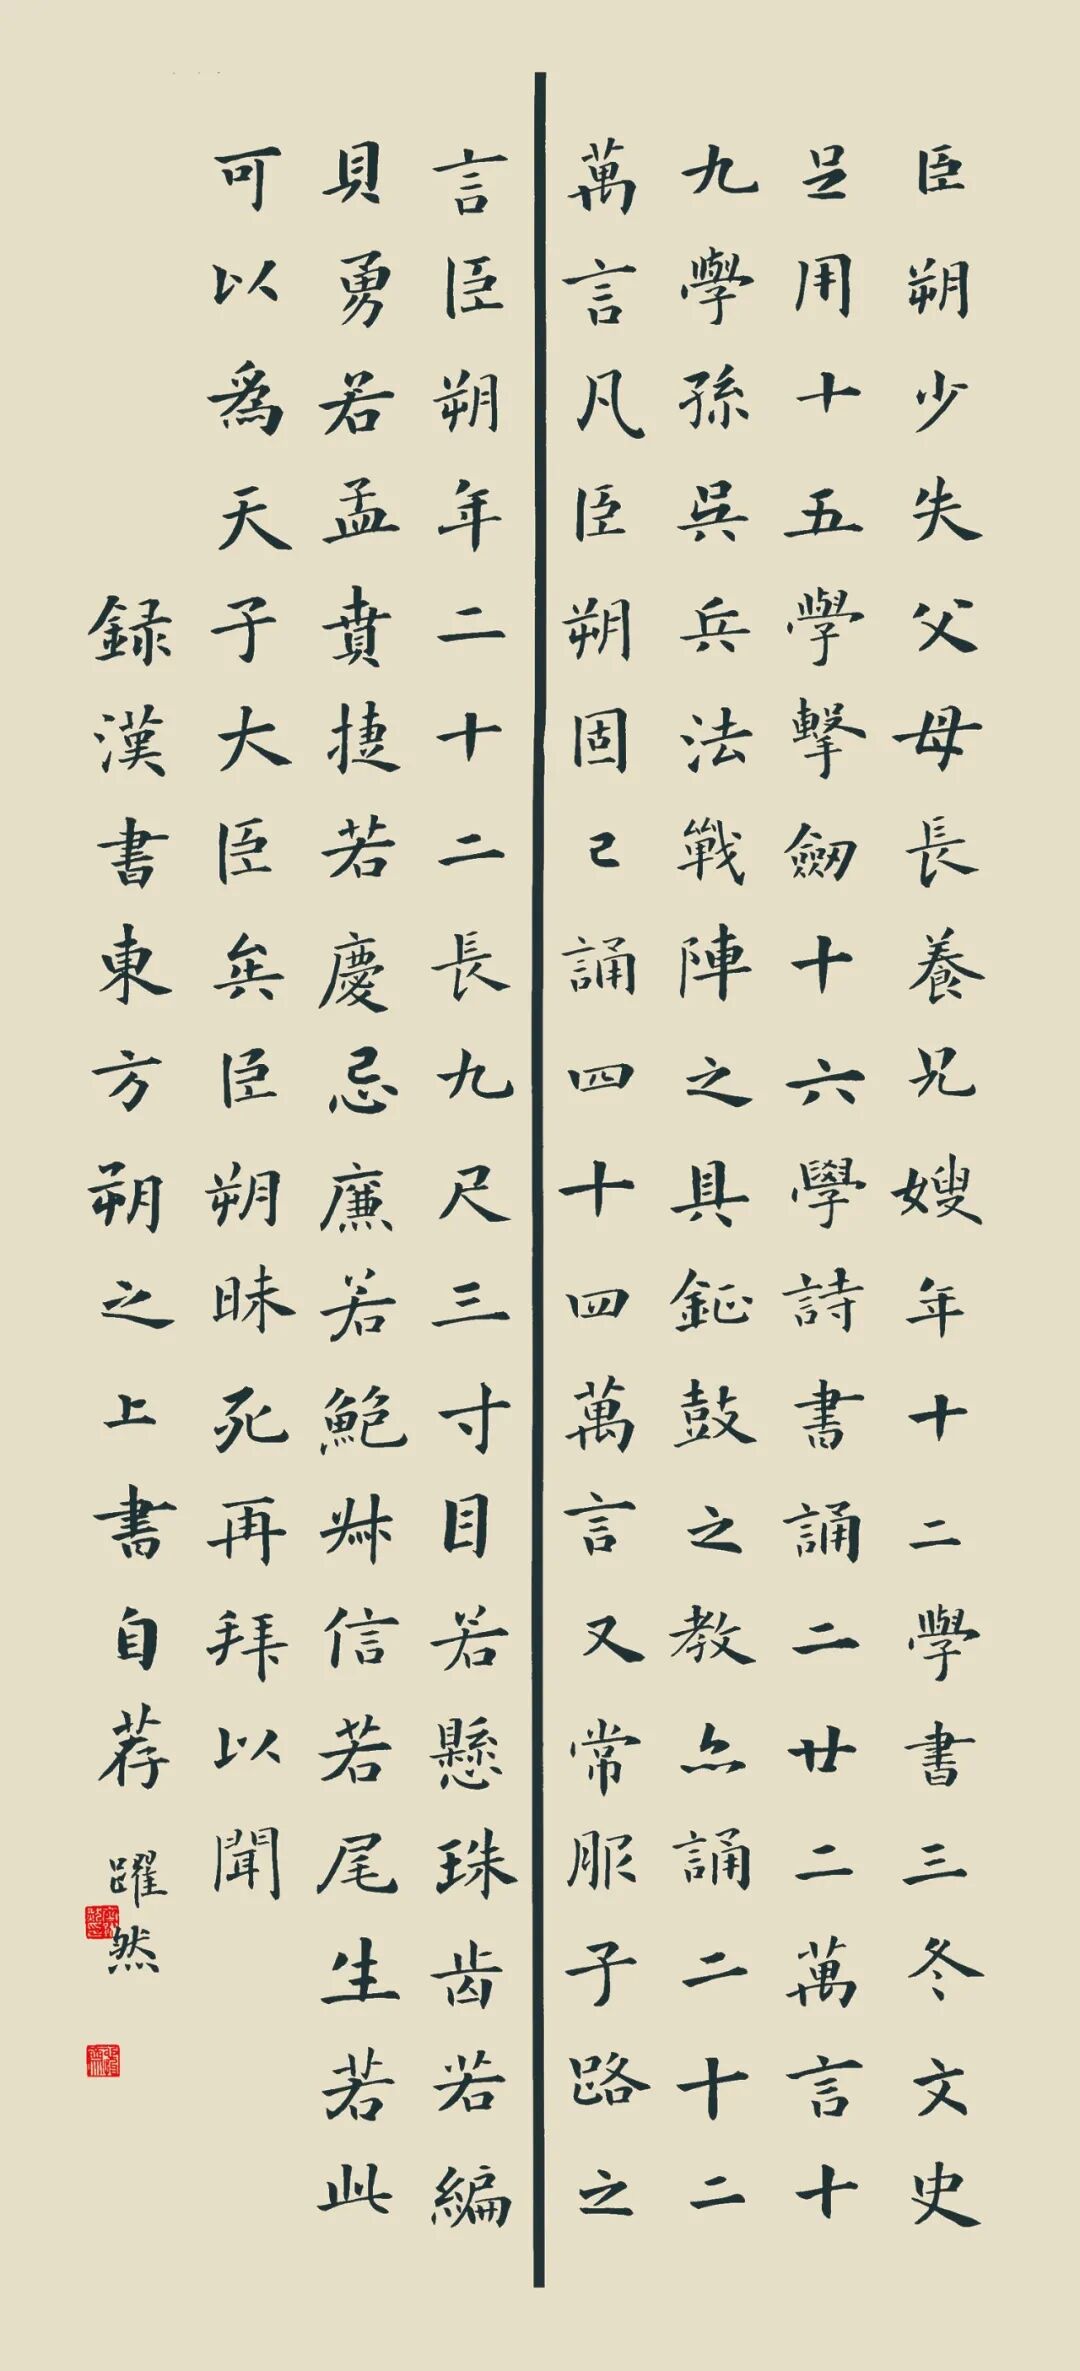 臣朔少失父母長養兄嫂年十二學書三冬文史
足用十五學擊劒十六學詩書誦二廿二萬言十
九學孫吳兵法戰陣之具鉦鼓之教亦誦二十二
萬言凡臣朔固已誦四十四萬言又常服子路之
言臣朔年二十二長九尺三寸目若懸珠齿若編
貝勇若孟賁捷若慶忌廉若鮑叔信若尾生若此
可以爲天子大臣矣臣朔昧死再拜以聞
録漢書東方朔之上書自荐 躍然